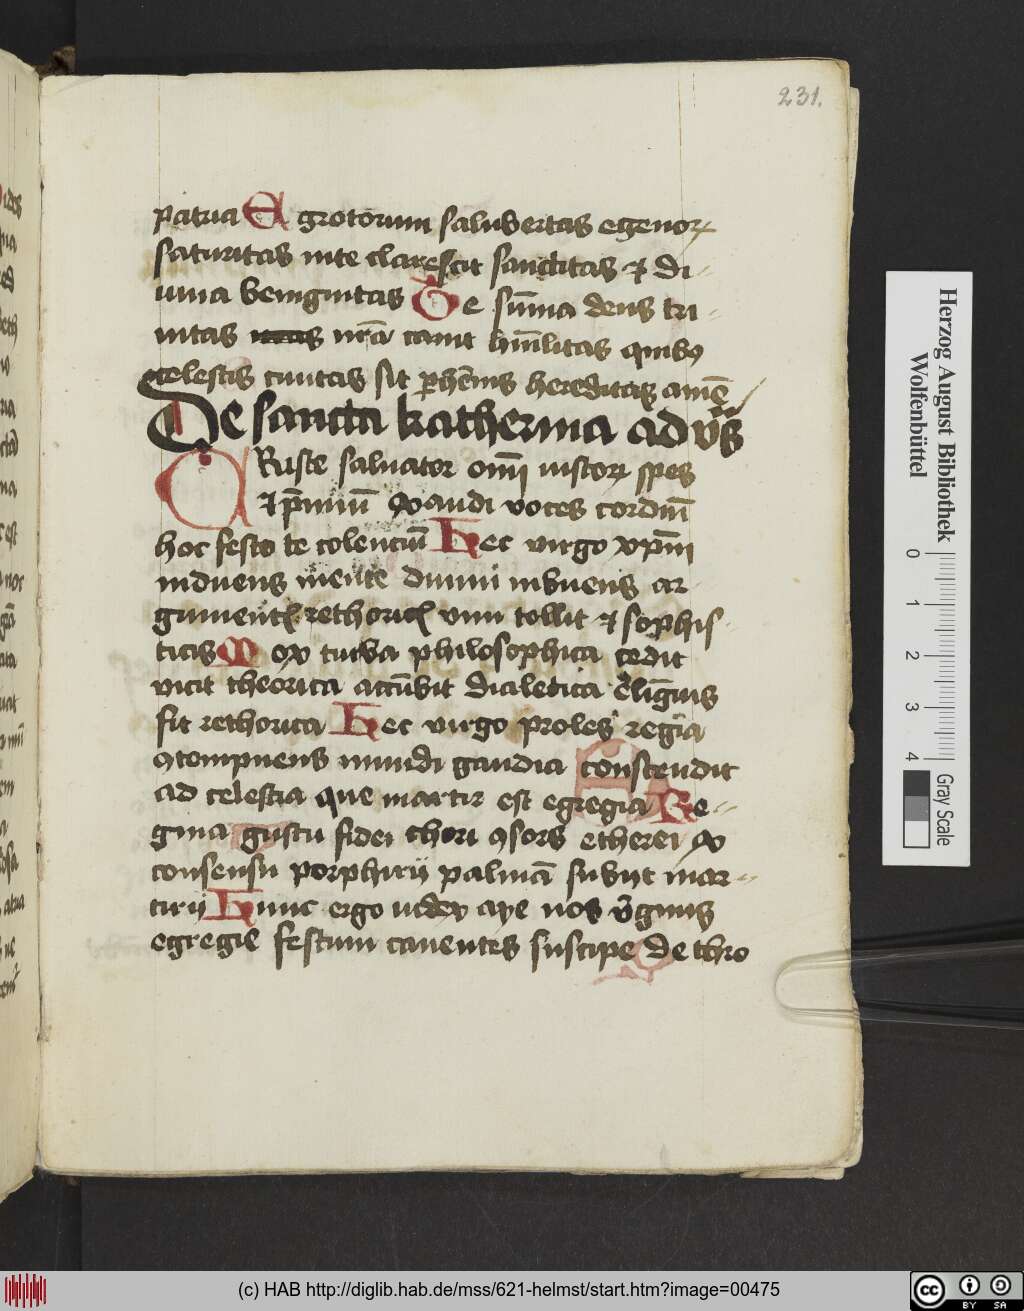 231.
patria Egrotorum salubertas egenorꝝ
saturitas in te clarescit sanctitas et di
uina benignitas Te sūma deus tri
nitas nrā canit hūilitas quibꝰ
celestis ciuitas sit ꝑhēnis hereditas amē
De sancta katherina ad vꝰs
CRiste saluator omī iustorꝝ spes
et p̄miū exaudi voces cordiū
hoc festo te colenciū Hec virgo xp̄m
induens mente diuini inbuens ar
gumentꝭ rethoricꝭ vim tollit et sophis
ticis Mox turba philosophica cedit
vicit theorica accūbit dialetica eligius
fit rethorica Hec virgo proles regia
ꝯtempnens mundi gaudia conscendit
ad celestia que martir est egregia Re
gina gustu fidei thori ꝯsors etherei ex
consensu porphirij palmā subijt mar
tirij Hinc ergo index aye nos v̄ginis
egregie festum canentes suscipe de thro
Herzog August Bibliothek
Wolfenbüttel
0 1 2 3 4
Gray Scale
(c) HAB http://diglib.hab.de/mss/621-helmst/start.htm?image=00475
cc BY SA